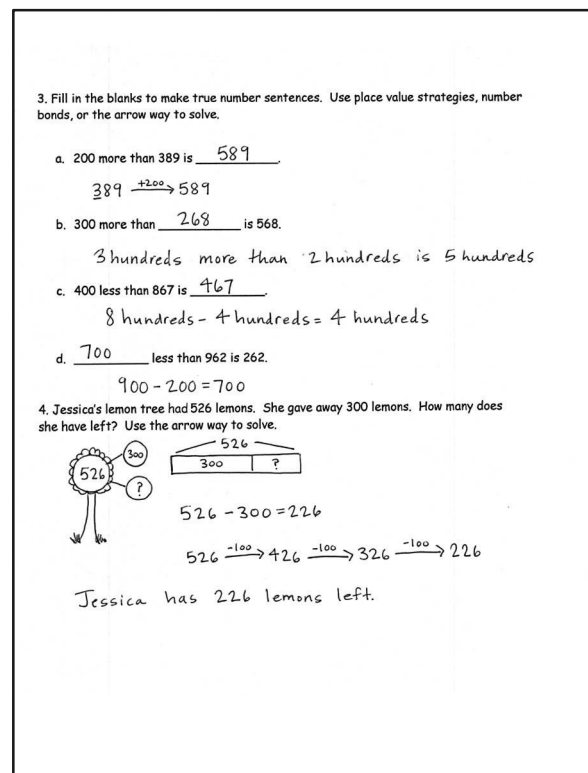 3. Fill in the blanks to make true number sentences. Use place value strategies, number
bonds, or the arrow way to solve.
a. 200 more than 389 is 589.
389 +200→ 589
b. 300 more than 268 is 568.
3 hundreds more than 2 hundreds is 5 hundreds
c. 400 less than 867 is 467.
8 hundreds - 4 hundreds = 4 hundreds
d. 700 less than 962 is 262.
900 - 200 = 700
4. Jessica's lemon tree had 526 lemons. She gave away 300 lemons. How many does
she have left? Use the arrow way to solve.
526
300
300 ?
526
?
526 - 300 = 226
526 -100→ 426 -100→ 326 -100→ 226
Jessica has 226 lemons left.